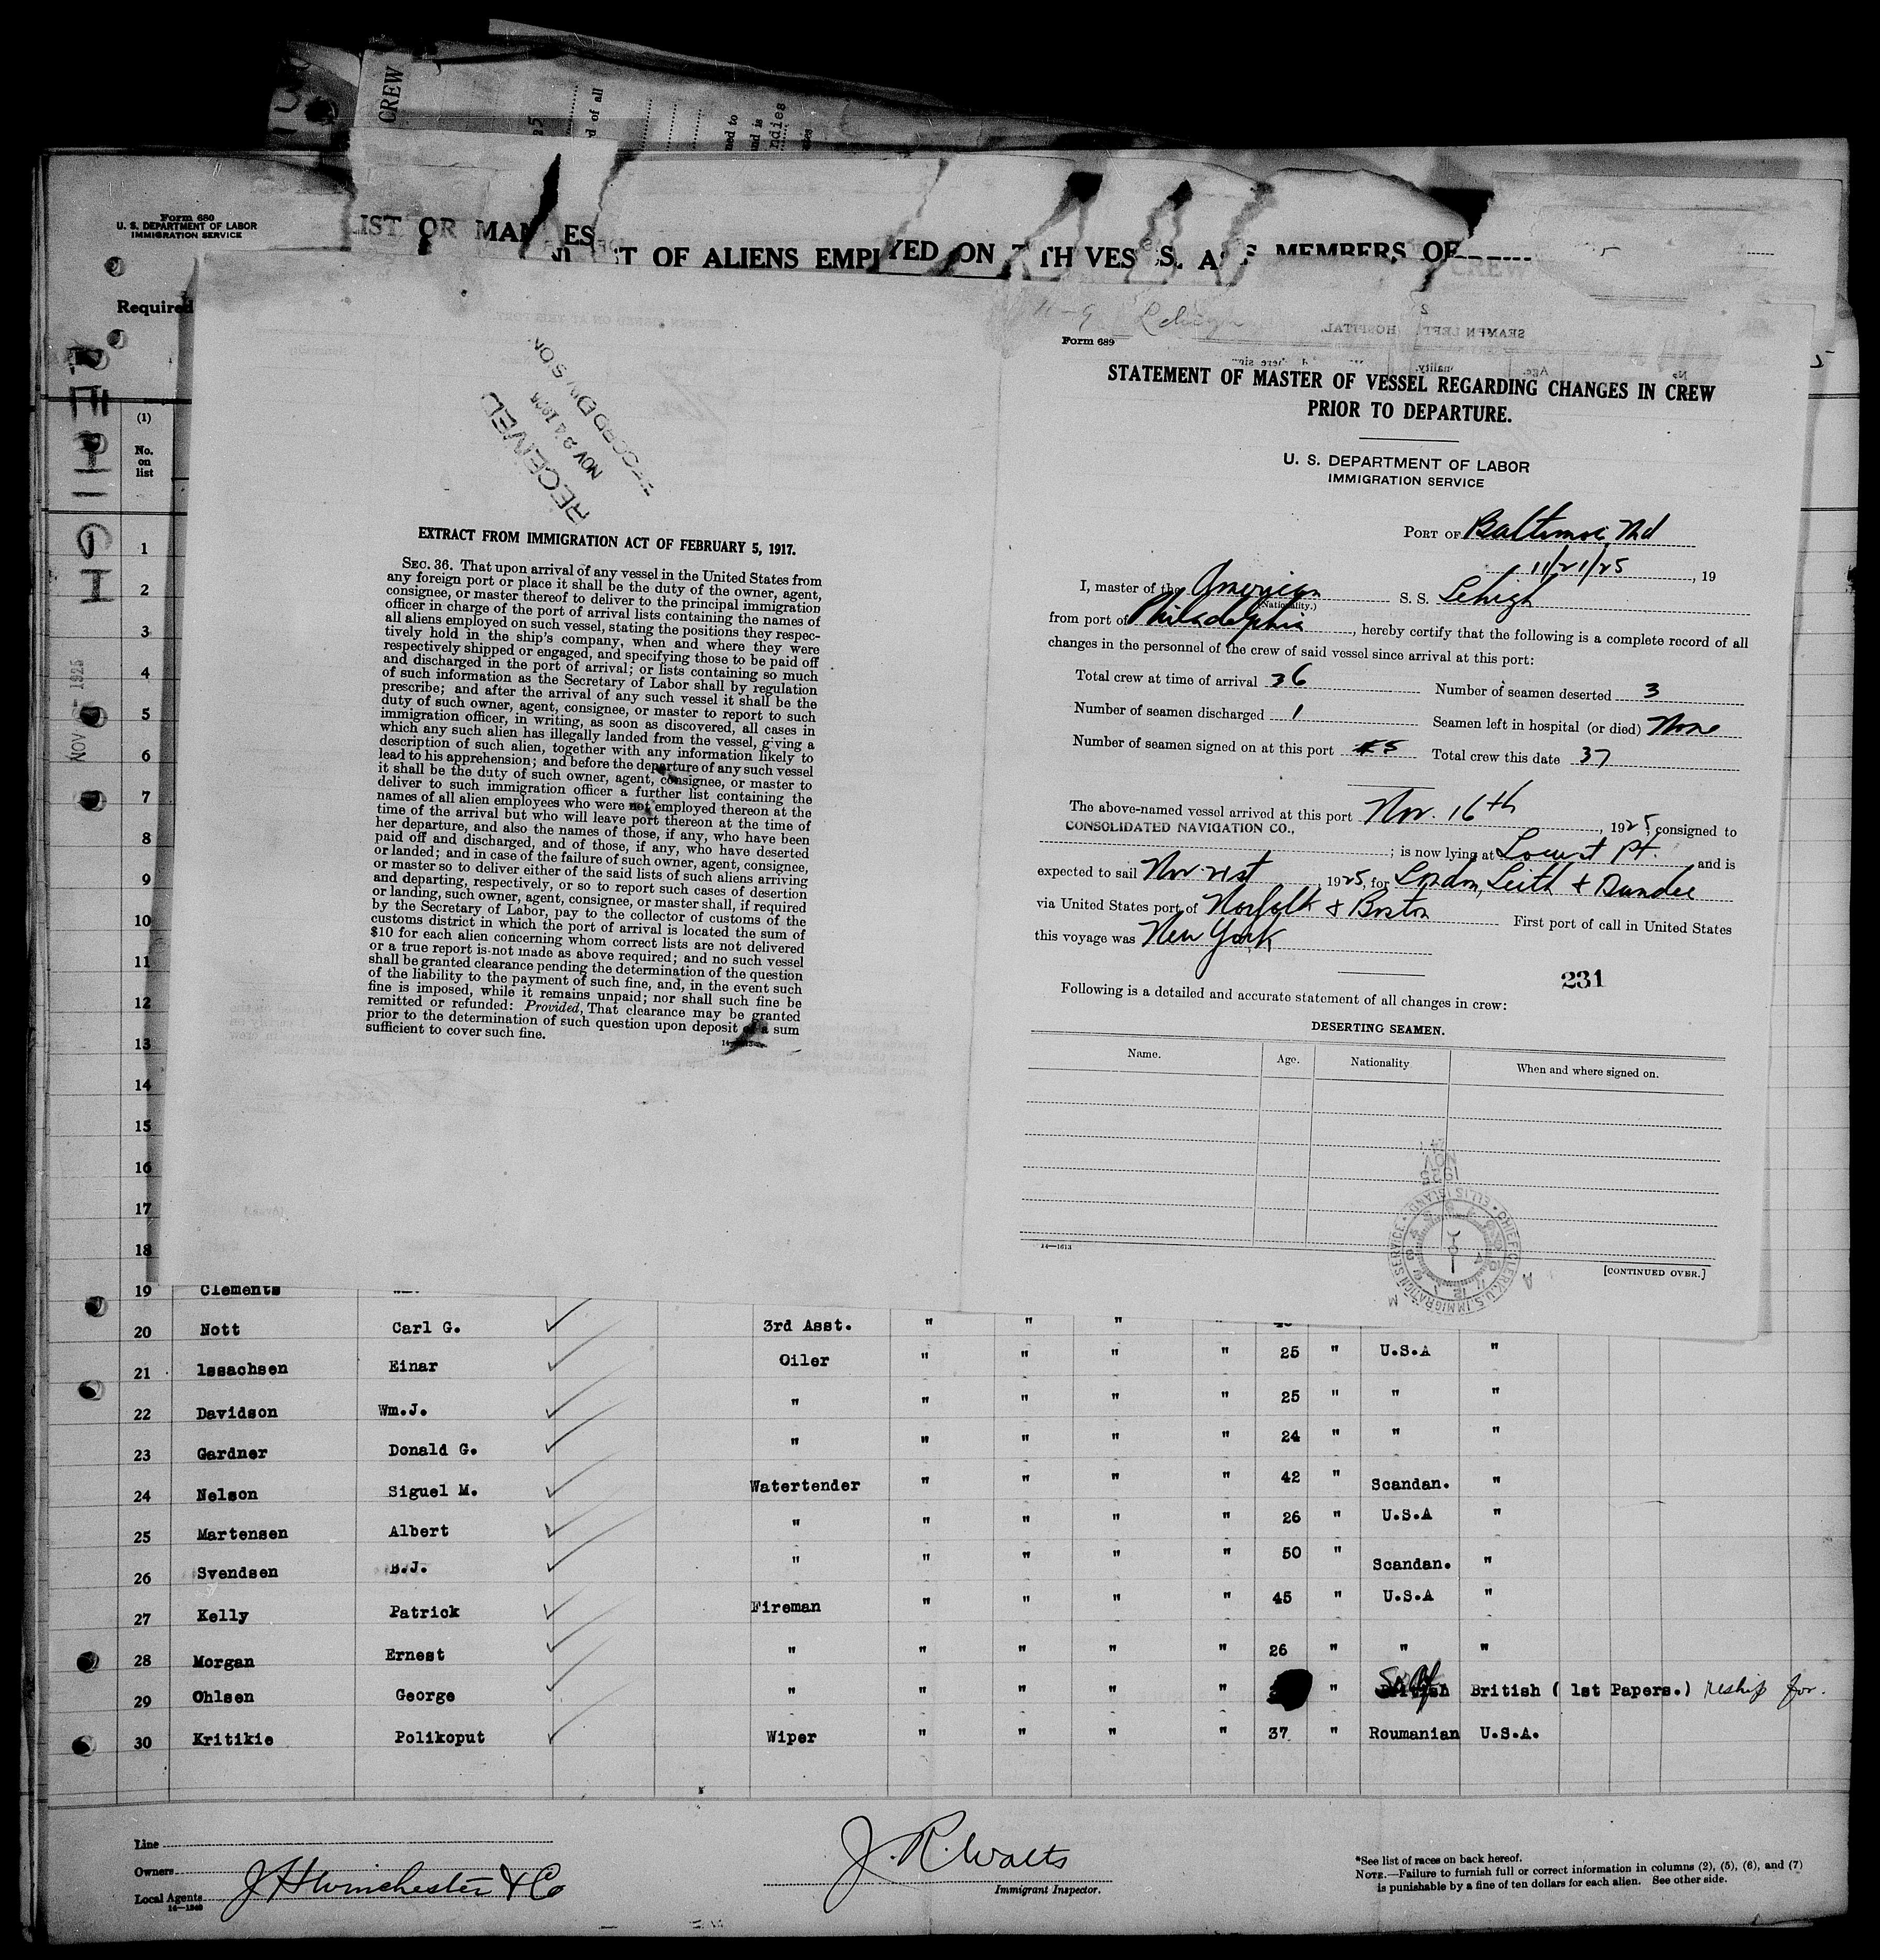 CREW
Form 680
U. S. DEPARTMENT OF LABOR
IMMIGRATION SERVICE
LIST OR MAN ES
T OF ALIENS EMPL YED ON TH VES S, AS MEMBERS OF
CREW
Required
(1)
No.
on
list
NOV 1925
RECEIVED
NOV 24 1925
RECORD DIVISION
EXTRACT FROM IMMIGRATION ACT OF FEBRUARY 5, 1917.
SEC. 36. That upon arrival of any vessel in the United States from
any foreign port or place it shall be the duty of the owner, agent,
consignee, or master thereof to deliver to the principal immigration
officer in charge of the port of arrival lists containing the names of
all aliens employed on such vessel, stating the positions they respec-
tively hold in the ship's company, when and where they were
respectively shipped or engaged, and specifying those to be paid off
and discharged in the port of arrival; or lists containing so much
of such information as the Secretary of Labor shall by regulation
prescribe; and after the arrival of any such vessel it shall be the
duty of such owner, agent, consignee, or master to report to such
immigration officer, in writing, as soon as discovered, all cases in
which any such alien has illegally landed from the vessel, giving a
description of such alien, together with any information likely to
lead to his apprehension; and before the departure of any such vessel
it shall be the duty of such owner, agent, consignee, or master to
deliver to such immigration officer a further list containing the
names of all alien employees who were not employed thereon at the
time of the arrival but who will leave port thereon at the time of
her departure, and also the names of those, if any, who have been
paid off and discharged, and of those, if any, who have deserted
or landed; and in case of the failure of such owner, agent, consignee,
or master so to deliver either of the said lists of such aliens arriving
and departing, respectively, or so to report such cases of desertion
or landing, such owner, agent, consignee, or master shall, if required
by the Secretary of Labor, pay to the collector of customs of the
customs district in which the port of arrival is located the sum of
$10 for each alien concerning whom correct lists are not delivered
or a true report is not made as above required; and no such vessel
shall be granted clearance pending the determination of the question
of the liability to the payment of such fine, and, in the event such
fine is imposed, while it remains unpaid; nor shall such fine be
remitted or refunded: Provided, That clearance may be granted
prior to the determination of such question upon deposit of a sum
sufficient to cover such fine.
11-9 Lehigh
Form 689
STATEMENT OF MASTER OF VESSEL REGARDING CHANGES IN CREW
PRIOR TO DEPARTURE.
U. S. DEPARTMENT OF LABOR
IMMIGRATION SERVICE
PORT OF Baltimore Md
11/21/25, 19
I, master of the American S. S. Lehigh
(Nationality.)
from port of Philadelphia, hereby certify that the following is a complete record of all
changes in the personnel of the crew of said vessel since arrival at this port:
Total crew at time of arrival 36 Number of seamen deserted 3
Number of seamen discharged 1 Seamen left in hospital (or died) None
Number of seamen signed on at this port 5 Total crew this date 37
The above-named vessel arrived at this port Nov. 16th, 1925, consigned to
CONSOLIDATED NAVIGATION CO.,
; is now lying at Locust Pt. and is
expected to sail Nov. 21st, 1925, for London, Leith & Dundee
via United States port of Norfolk & Boston First port of call in United States
this voyage was New York
231
Following is a detailed and accurate statement of all changes in crew:
DESERTING SEAMEN.
Name. Age. Nationality When and where signed on.
NOV
1925
CHIEF CLERK, U.S. IMMIGRATION SERVICE · ELLIS ISLAND
14—1613
[CONTINUED OVER.]
1
2
3
4
5
6
7
8
9
10
11
12
13
14
15
16
17
18
19 Clements
20 Nott Carl G. 3rd Asst. " " " "
21 Issachsen Einar Oiler " " " " 25 " U.S.A "
22 Davidson Wm.J. " " " " " 25 " " "
23 Gardner Donald G. " " " " " 24 " " "
24 Nelson Siguel M. Watertender " " " " 42 " Scandan. "
25 Martensen Albert " " " " " 26 " U.S.A "
26 Svendsen B.J. " " " " " 50 " Scandan. "
27 Kelly Patrick Fireman " " " " 45 " U.S.A "
28 Morgan Ernest " " " " " 26 " " "
29 Ohlsen George " " " " " " British British ( 1st Papers.) reship for.
30 Kritikie Polikoput Wiper " " " " 37 " Roumanian U.S.A.
Line
Owners
Local Agents J H Winchester & Co
14—1240
J. R. Walts
Immigrant Inspector.
*See list of races on back hereof.
NOTE.—Failure to furnish full or correct information in columns (2), (5), (6), and (7)
is punishable by a fine of ten dollars for each alien. See other side.